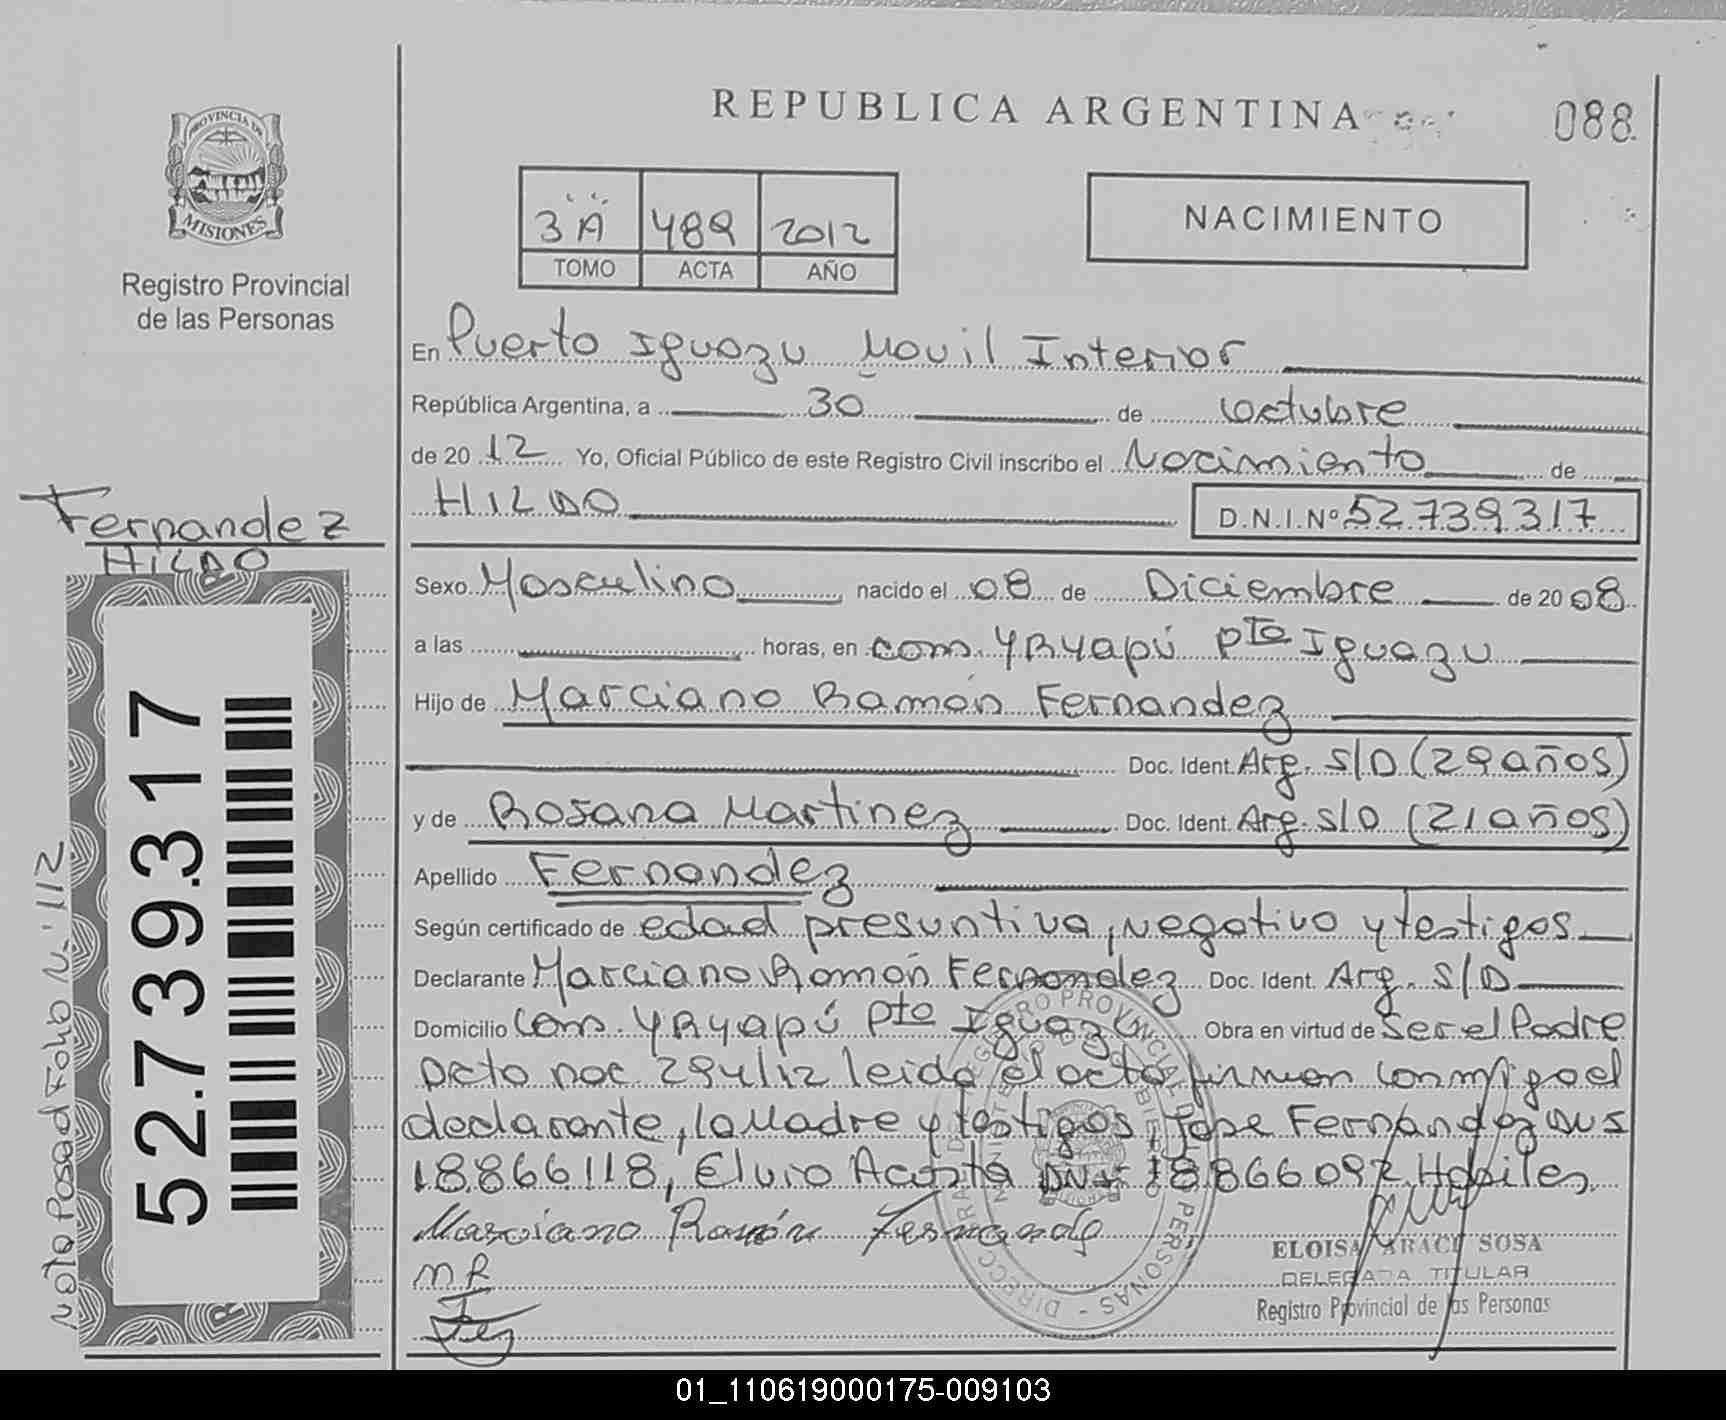 REPUBLICA ARGENTINA
088
PROVINCIA DE
MISIONES
Registro Provincial
de las Personas
3ª A 489 2012
TOMO ACTA AÑO
NACIMIENTO
En Puerto Iguazu Movil Interior
República Argentina, a 30 de Octubre
de 2012 Yo, Oficial Público de este Registro Civil inscribo el Nacimiento de
HILDO D.N.I.Nº 52.739.317
Fernandez
HILDO
Sexo Masculino nacido el 08 de Diciembre de 2008
a las horas, en com. YRYapú Pto Iguazu
Hijo de Marciano Ramón Fernandez
Doc. Ident. Arg. S/D (29 años)
y de Rosana Martinez Doc. Ident. Arg. S/D (21 años)
Apellido Fernandez
Según certificado de edad presuntiva, negativo y testigos
Declarante Marciano Ramón Fernandez Doc. Ident. Arg. S/D
Domicilio Com. YRyapú Pto Iguazu Obra en virtud de Ser el Padre
Dcto nac 294/12 leida el acta firman conmigo el
declarante, la Madre y testigos, Jose Fernandez DNI
18.866.118, Elvio Acosta DNI 18.866.092 Habiles
Marciano Ramón Fernande
M R
ELOISA ARACI SOSA
DELEGADA TITULAR
Registro Provincial de las Personas
52.739.317
Nota Posad Folio N. 112
01_110619000175-009103